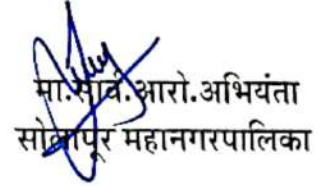 मा.सार्व.आरो.अभियंता
सोलापूर महानगरपालिका